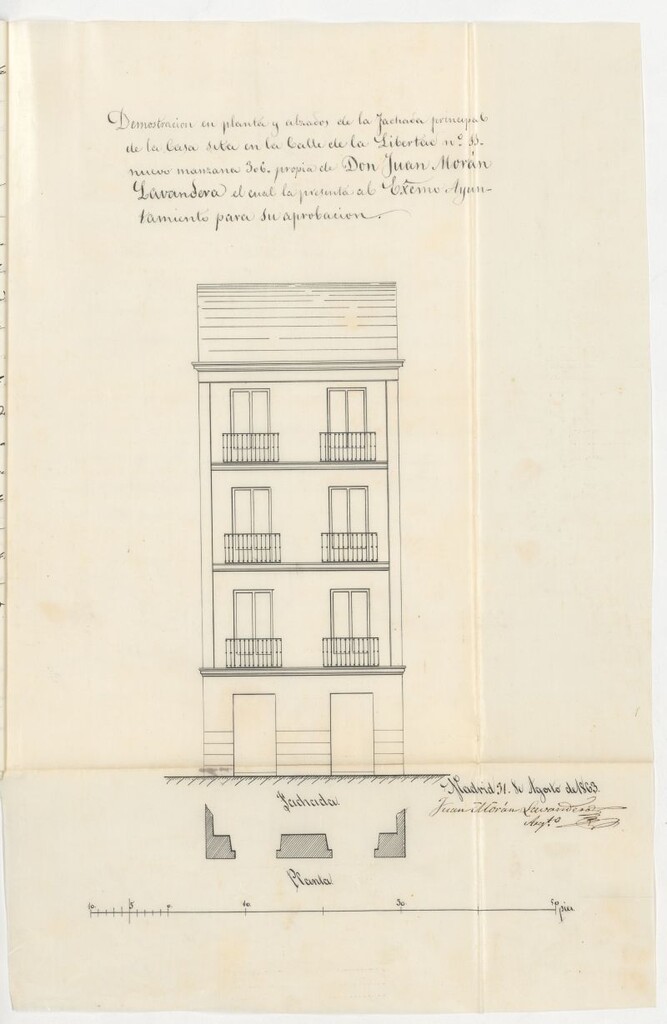 Demostracion en planta y alzados de la Fachada principal
de la Casa sita en la Calle de la Libertad nº 33.
nuevo manzana 306. propia de Don Juan Morán
Lavandera el cual la presenta al Exêmo Ayun-
tamiento para su aprobacion.
Madrid 31. de Agosto de 1863.
Juan Morán Lavandera
Arqto
Fachada
Planta
10 5 0 10 30 50 pies